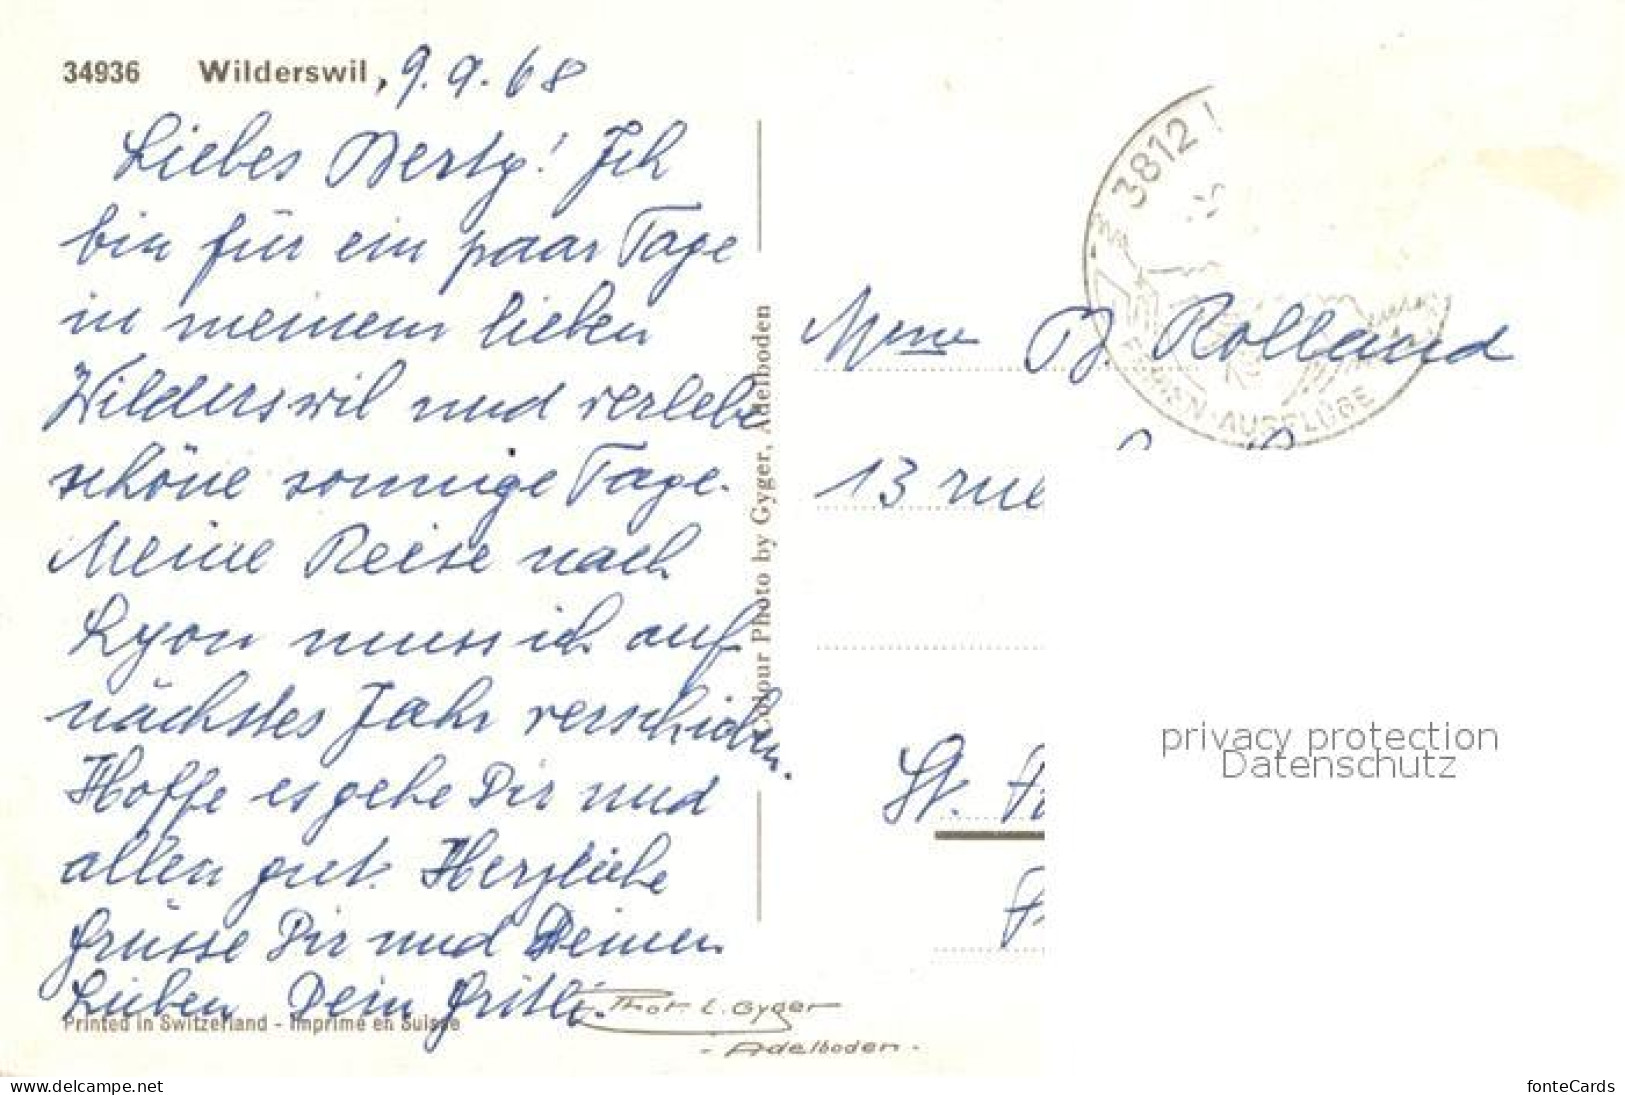 34936 Wilderswil, 9.9.68
Liebes Berty! Ich
bin für ein paar Tage
in meinem lieben
Wilderswil und verlebe
schöne sonnige Tage.
Meine Reise nach
Lyon muss ich auf
nächstes Jahr verschieben.
Hoffe es gehe Dir und
allen gut. Herzliche
Grüsse Dir und Deinen
Lieben Dein Gritli.
Printed in Switzerland - Imprimé en Suisse
Phot. L. Gyger
- Adelboden -
Colour Photo by Gyger, Adelboden
3812
FERIEN · AUSFLÜGE
Mme B. Rolland
13 rue
St.
privacy protection
Datenschutz
www.delcampe.net
fonteCards